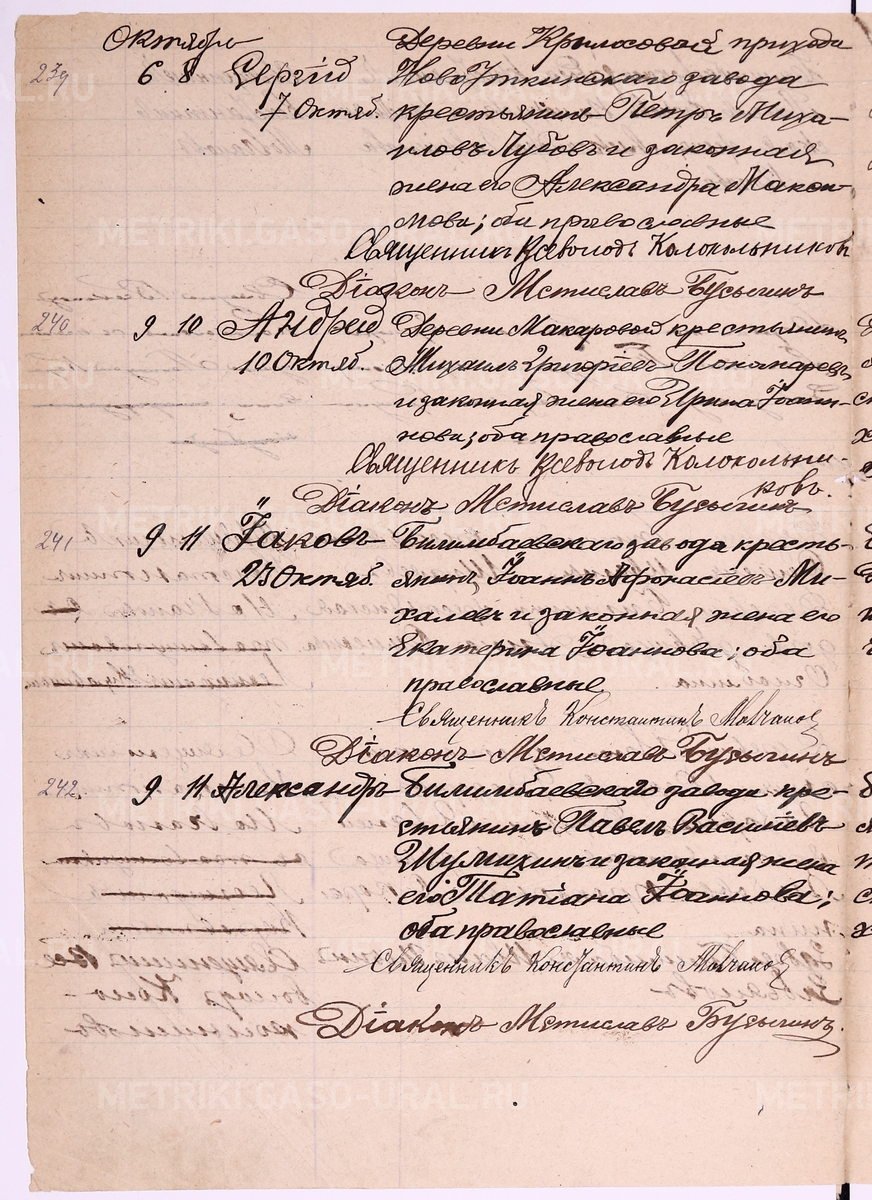 Октябрь
Деревни Крылосовой прихода
239 6 8 Сергій Ново Уткинскаго завода
7 Октяб. крестьянинъ Петръ Миха-
иловъ Лубовъ и законная
жена его Александра Макси-
мова; оба православные
Священникъ Всеволодъ Колокольниковъ
Діаконъ Мстиславъ Бусыгинъ
240 9 10 Андрей Деревни Макаровой крестьянинъ
10 Октяб. Михаилъ Григоріевъ Пономаревъ
и законная жена его Ирина Іоан-
нова; оба православные
Священникъ Всеволодъ Колокольни-
ковъ.
Діаконъ Мстиславъ Бусыгинъ
241 9 11 Іаковъ Билимбаевскаго завода кресть-
23 Октяб. янинъ Іоаннъ Афонасіевъ Ми-
халевъ и законная жена его
Екатерина Іоаннова; оба
православные
Священникъ Константинъ Мовчанов
Діаконъ Мстиславъ Бусыгинъ
242 9 11 Александръ Билимбаевскаго завода кре-
стьянинъ Павелъ Василіевъ
Шумихинъ и законная жена
его Татіана Іоаннова;
оба православные
Священникъ Константинъ Мовчанов
Діаконъ Мстиславъ Бусыгинъ.
METRIKI.GASO-URAL.RU